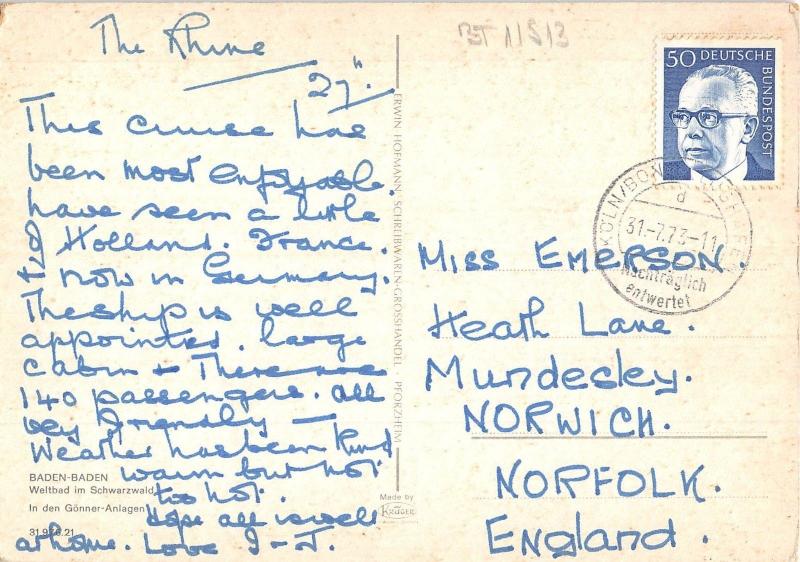 The Rhine
27".
This cruise has
been most enjoyable.
have seen a little
of Holland. France.
& now in Germany.
The ship is well
appointed. large
cabin + There are
140 passengers. all
very friendly —
Weather has been kind
warm but not
too hot.
Hope all is well
at home. Love J-J.
BADEN-BADEN
Weltbad im Schwarzwald
In den Gönner-Anlagen
31.976.21
ERWIN HOFMANN · SCHREIBWAREN-GROSSHANDEL · PFORZHEIM
Made by
KRÜGER
BT 11513
50 DEUTSCHE
BUNDESPOST
KÖLN/BONN FLUGHAFEN
d
31.-7.73-11
Nachträglich
entwertet
MISS EMERSON
Heath Lane.
Mundesley.
NORWICH.
NORFOLK.
England.